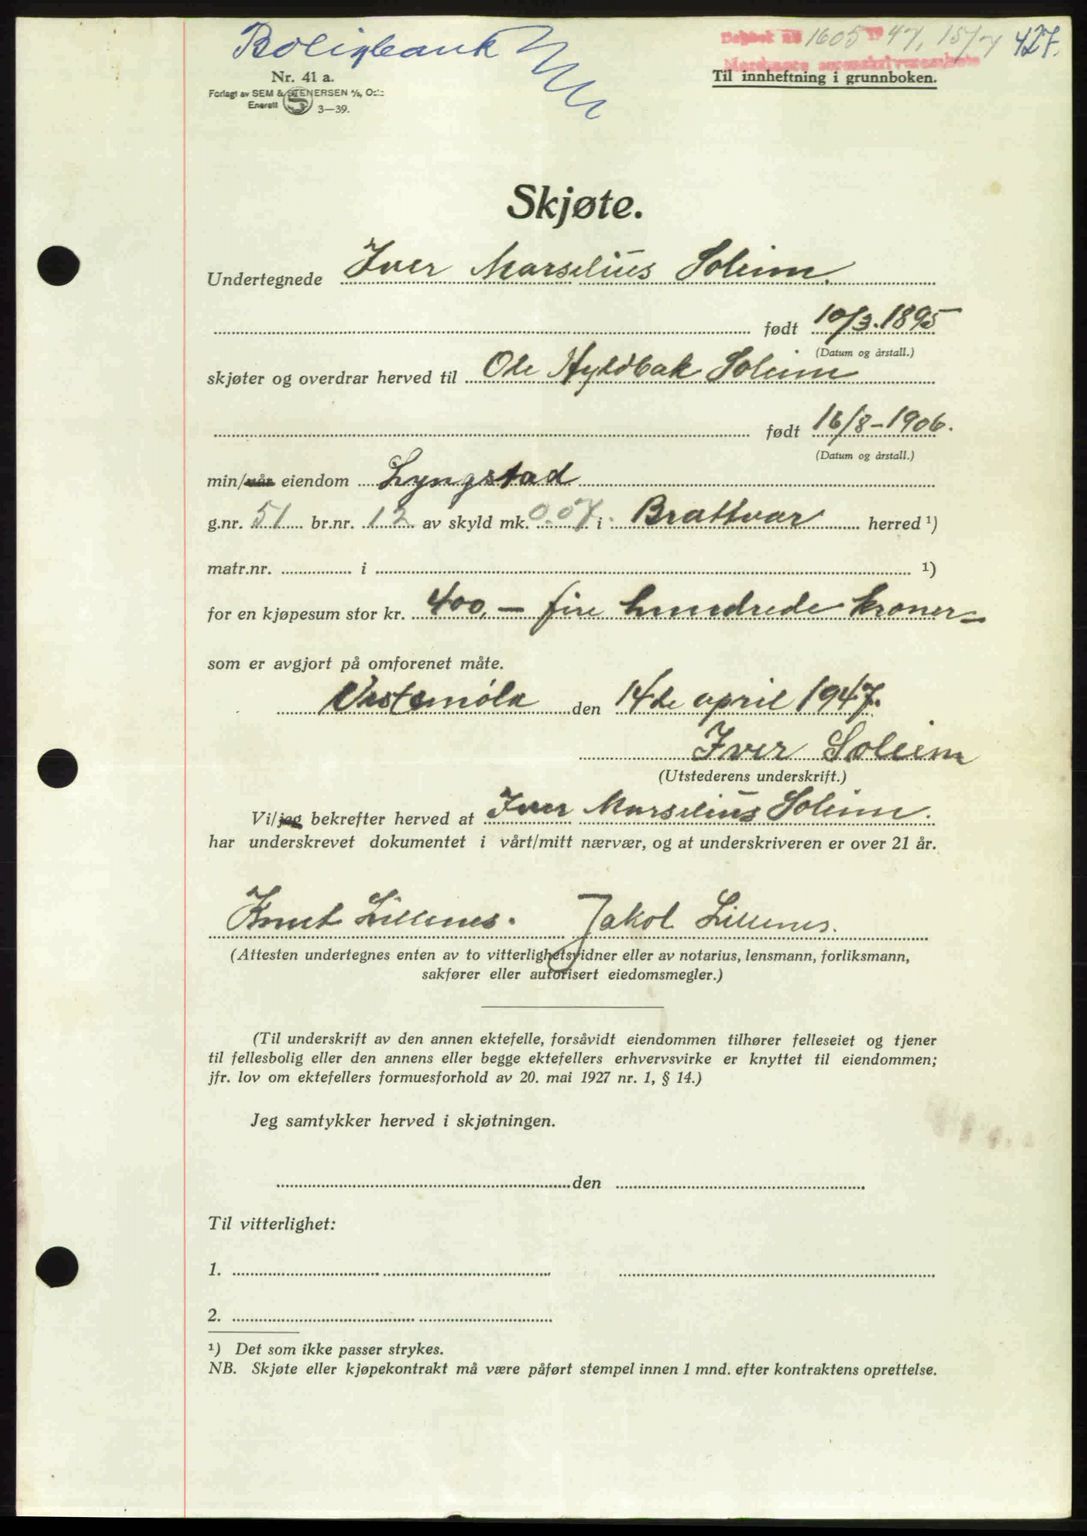 Boligbank
Dagbok nr 1605 1947, 15/7 427.
Nordmøre sorenskriverembete
Nr. 41 a.
Til innheftning i grunnboken.
Forlagt av SEM & STENERSEN A/S, Oslo
Enerett S 3—39.
Skjøte.
Undertegnede Iver Marselius Soleim.
født 10/3.1895
(Datum og årstall.)
skjøter og overdrar herved til Ole Hyldbak Soleim
født 16/8-1906.
(Datum og årstall.)
min/vår eiendom Lyngstad
g.nr. 51 br.nr. 12 av skyld mk. 0.07 i Brattvær herred ¹)
matr.nr. i ¹)
for en kjøpesum stor kr. 400,- fire hundrede kroner-
som er avgjort på omforenet måte.
den 14de april 1947.
Iver Soleim
(Utstederens underskrift.)
Vi/jeg bekrefter herved at Iver Marselius Soleim.
har underskrevet dokumentet i vårt/mitt nærvær, og at underskriveren er over 21 år.
Knut Lillenes. Jakob Lillenes.
(Attesten undertegnes enten av to vitterlighetsvidner eller av notarius, lensmann, forliksmann,
sakfører eller autorisert eiedomsmegler.)
(Til underskrift av den annen ektefelle, forsåvidt eiendommen tilhører felleseiet og tjener
til fellesbolig eller den annens eller begge ektefellers erhvervsvirke er knyttet til eiendommen;
jfr. lov om ektefellers formuesforhold av 20. mai 1927 nr. 1, § 14.)
Jeg samtykker herved i skjøtningen.
den
Til vitterlighet:
1.
2.
¹) Det som ikke passer strykes.
NB. Skjøte eller kjøpekontrakt må være påført stempel innen 1 mnd. efter kontraktens oprettelse.